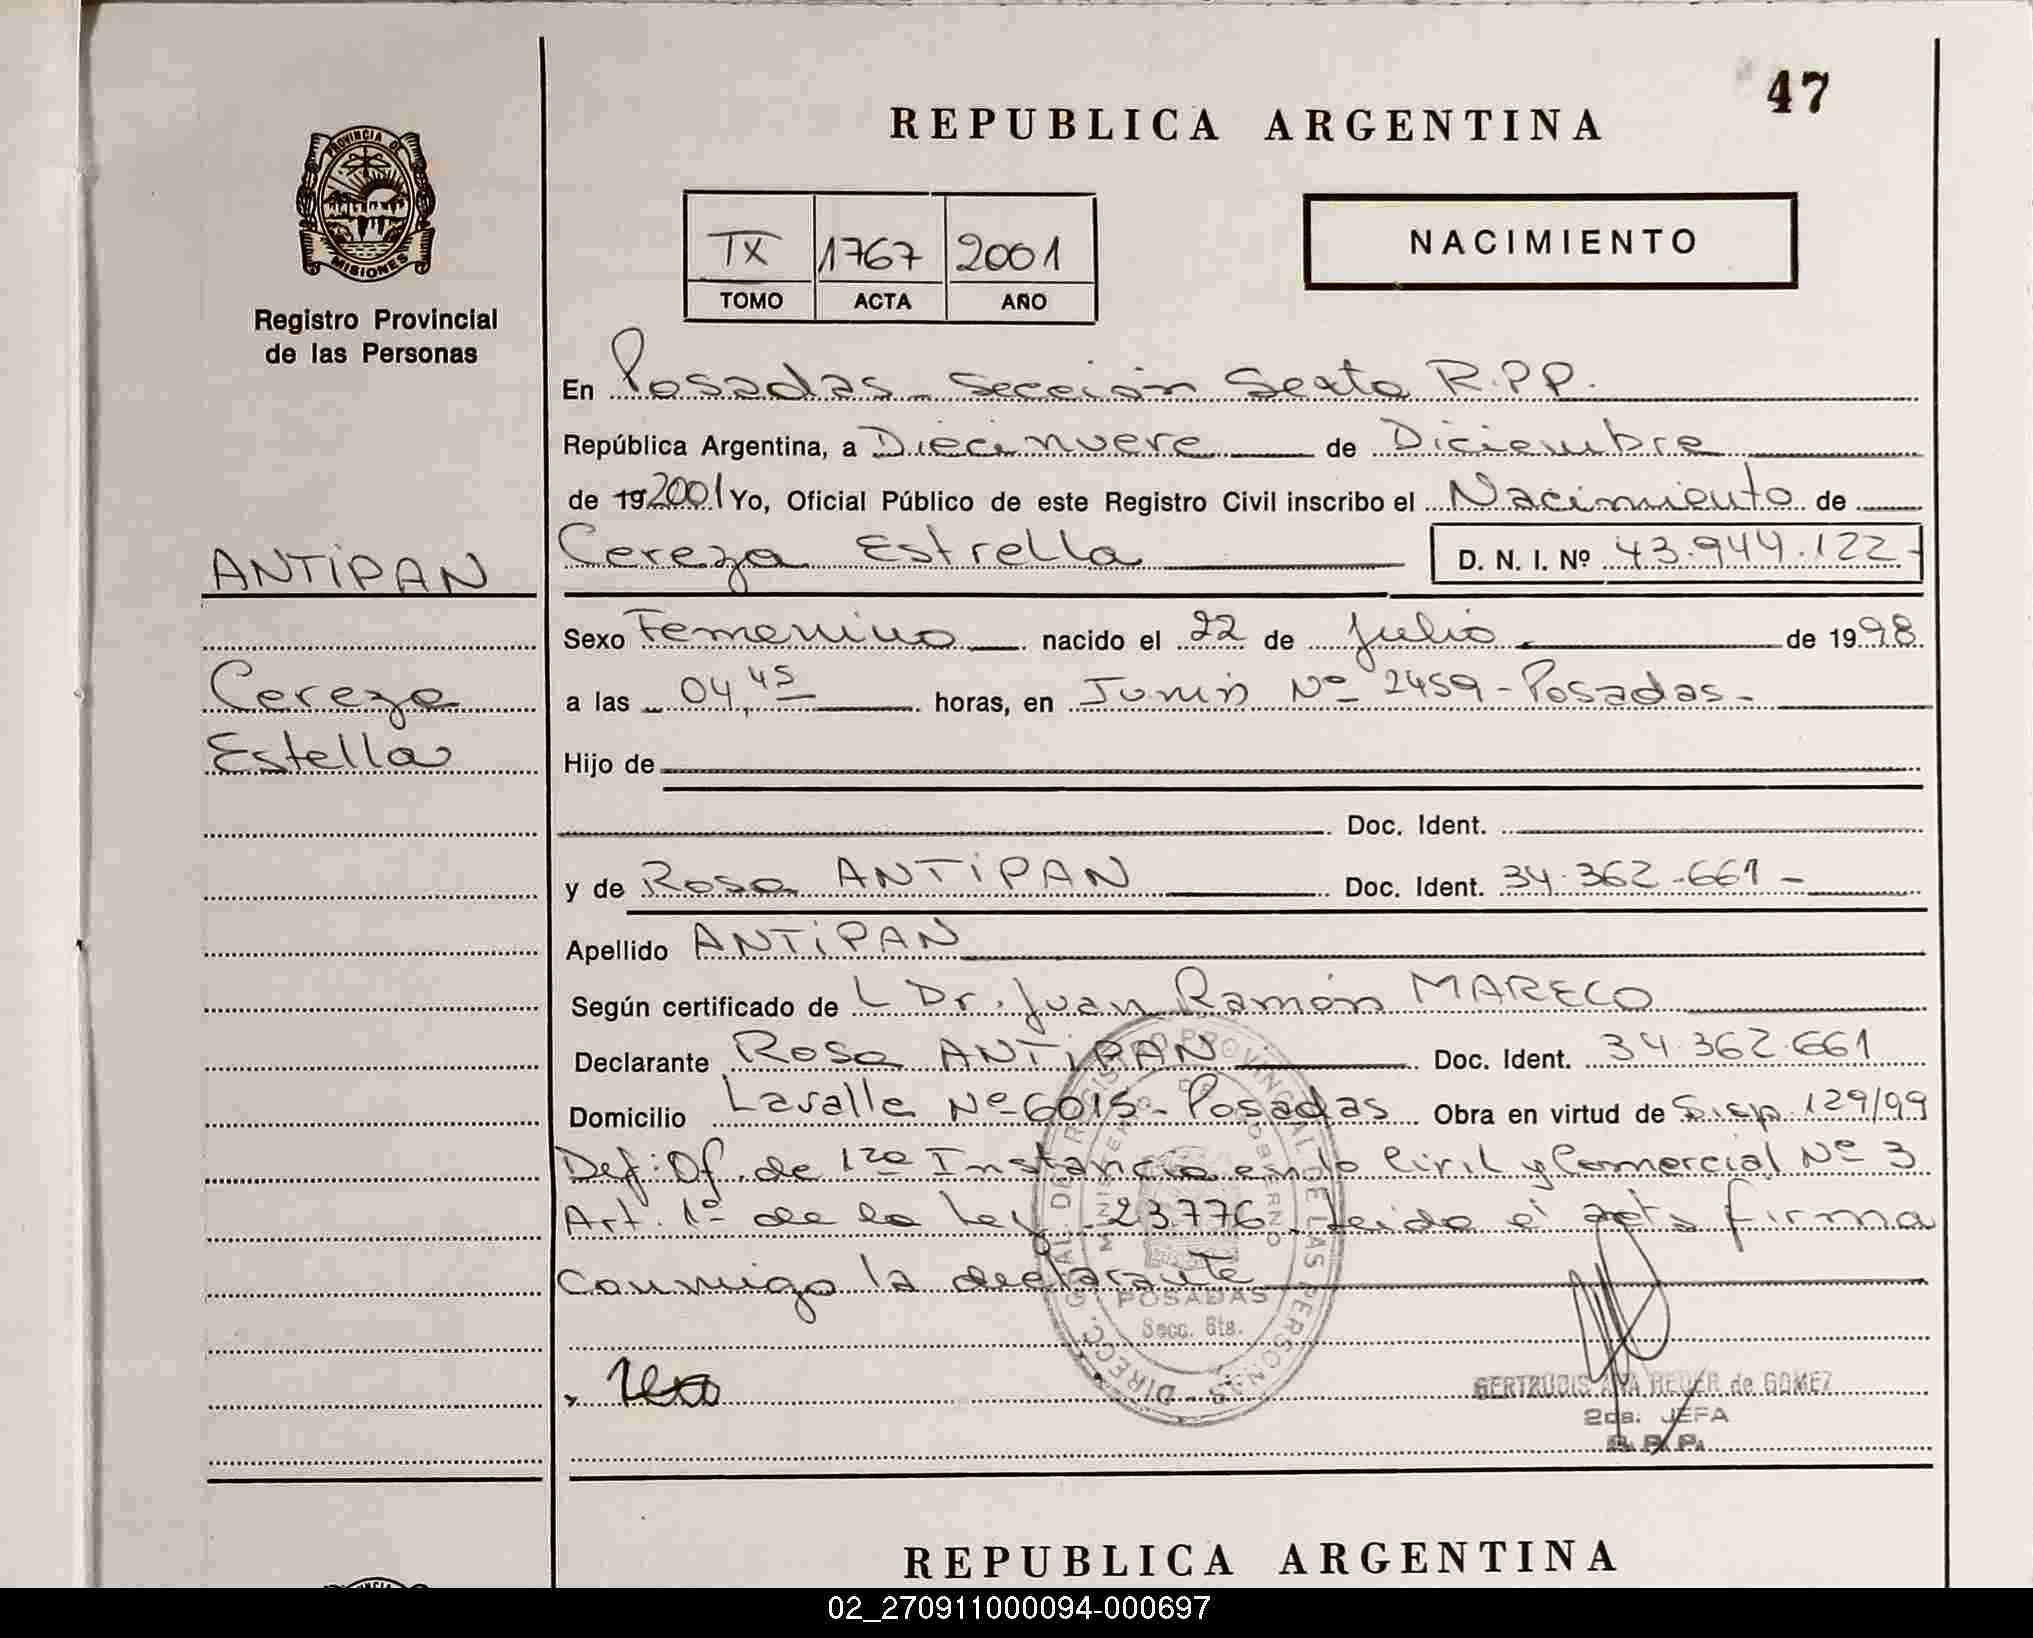 47
REPUBLICA ARGENTINA
PROVINCIA DE
MISIONES
Registro Provincial
de las Personas
TX 1767 2001
TOMO ACTA AÑO
NACIMIENTO
En Posadas - Sección Sexta R.P.P.
República Argentina, a Diecinueve de Diciembre
de 19 2001 Yo, Oficial Público de este Registro Civil inscribo el Nacimiento de
Cereza Estrella D. N. I. Nº 43.944.122-
ANTIPAN
Sexo Femenino nacido el 22 de Julio de 1998
Cereza
a las 04,45 horas, en Junin Nº 2459 - Posadas -
Estella
Hijo de
Doc. Ident.
y de Rosa ANTIPAN Doc. Ident. 34.362.661 -
Apellido ANTIPAN
Según certificado de L Dr. Juan Ramón MARECO
Declarante Rosa ANTIPAN Doc. Ident. 34.362.661
Domicilio Lavalle Nº 6015 - Posadas Obra en virtud de 129/99
Def. Of. de 1ra Instancia en lo Civil y Comercial Nº 3
Art. 1º de la Ley 23776 leida el acta firma
conmigo la declarante
DIRECC. GRAL. DEL REGISTRO PROVINCIAL DE LAS PERSONAS
MINISTERIO DE GOBIERNO
POSADAS
Secc. 6ta.
GERTRUDIS ANA de GOMEZ
2da. JEFA
R. P. P.
REPUBLICA ARGENTINA
02_270911000094-000697